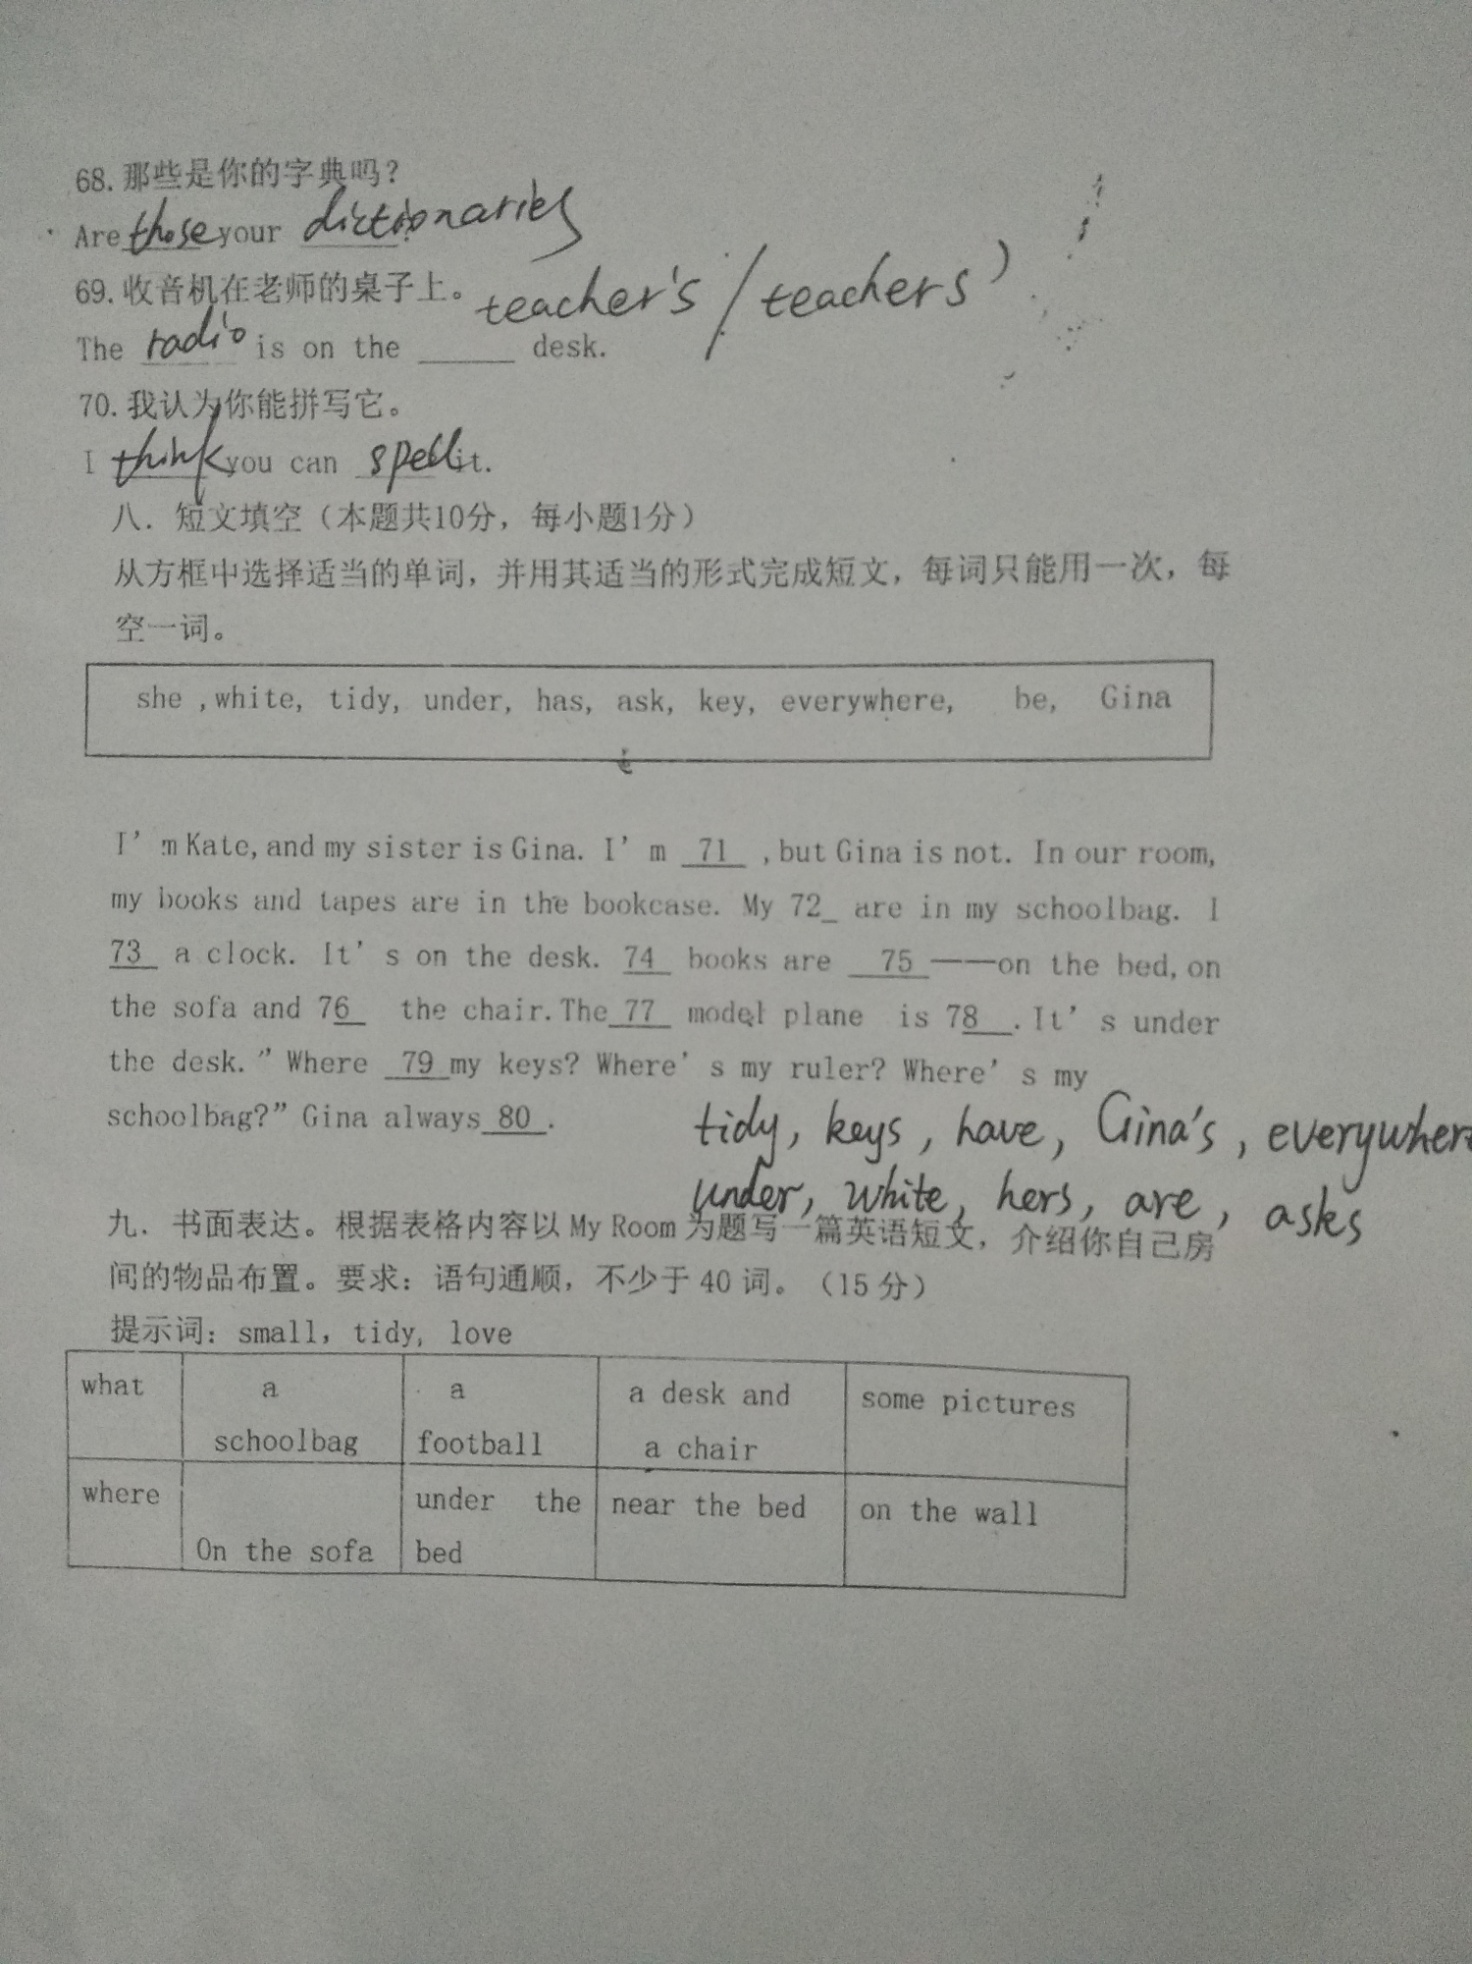 68.那些是你的字典吗?
Are those your dictionaries?
69.收音机在老师的桌子上。 teacher's / teachers'
The radio is on the ______ desk.
70.我认为你能拼写它。
I think you can spell it.
八. 短文填空（本题共10分, 每小题1分）
从方框中选择适当的单词, 并用其适当的形式完成短文, 每词只能用一次, 每
空一词。
she ,white, tidy, under, has, ask, key, everywhere, be, Gina
I' m Kate, and my sister is Gina. I' m _71_ ,but Gina is not. In our room,
my books and tapes are in the bookcase. My 72_ are in my schoolbag. I
73_ a clock. It' s on the desk. 74_ books are _75_——on the bed, on
the sofa and 76_ the chair. The_77_ model plane is 78_.It' s under
the desk. "Where _79_my keys? Where' s my ruler? Where' s my
schoolbag?" Gina always_80_.
tidy, keys, have, Gina's, everywhere
under, white, hers, are, asks
九. 书面表达。根据表格内容以 My Room 为题写一篇英语短文, 介绍你自己房
间的物品布置。要求: 语句通顺, 不少于 40 词。（15 分）
提示词: small, tidy, love
what a a a desk and some pictures
schoolbag football a chair
where under the near the bed on the wall
On the sofa bed